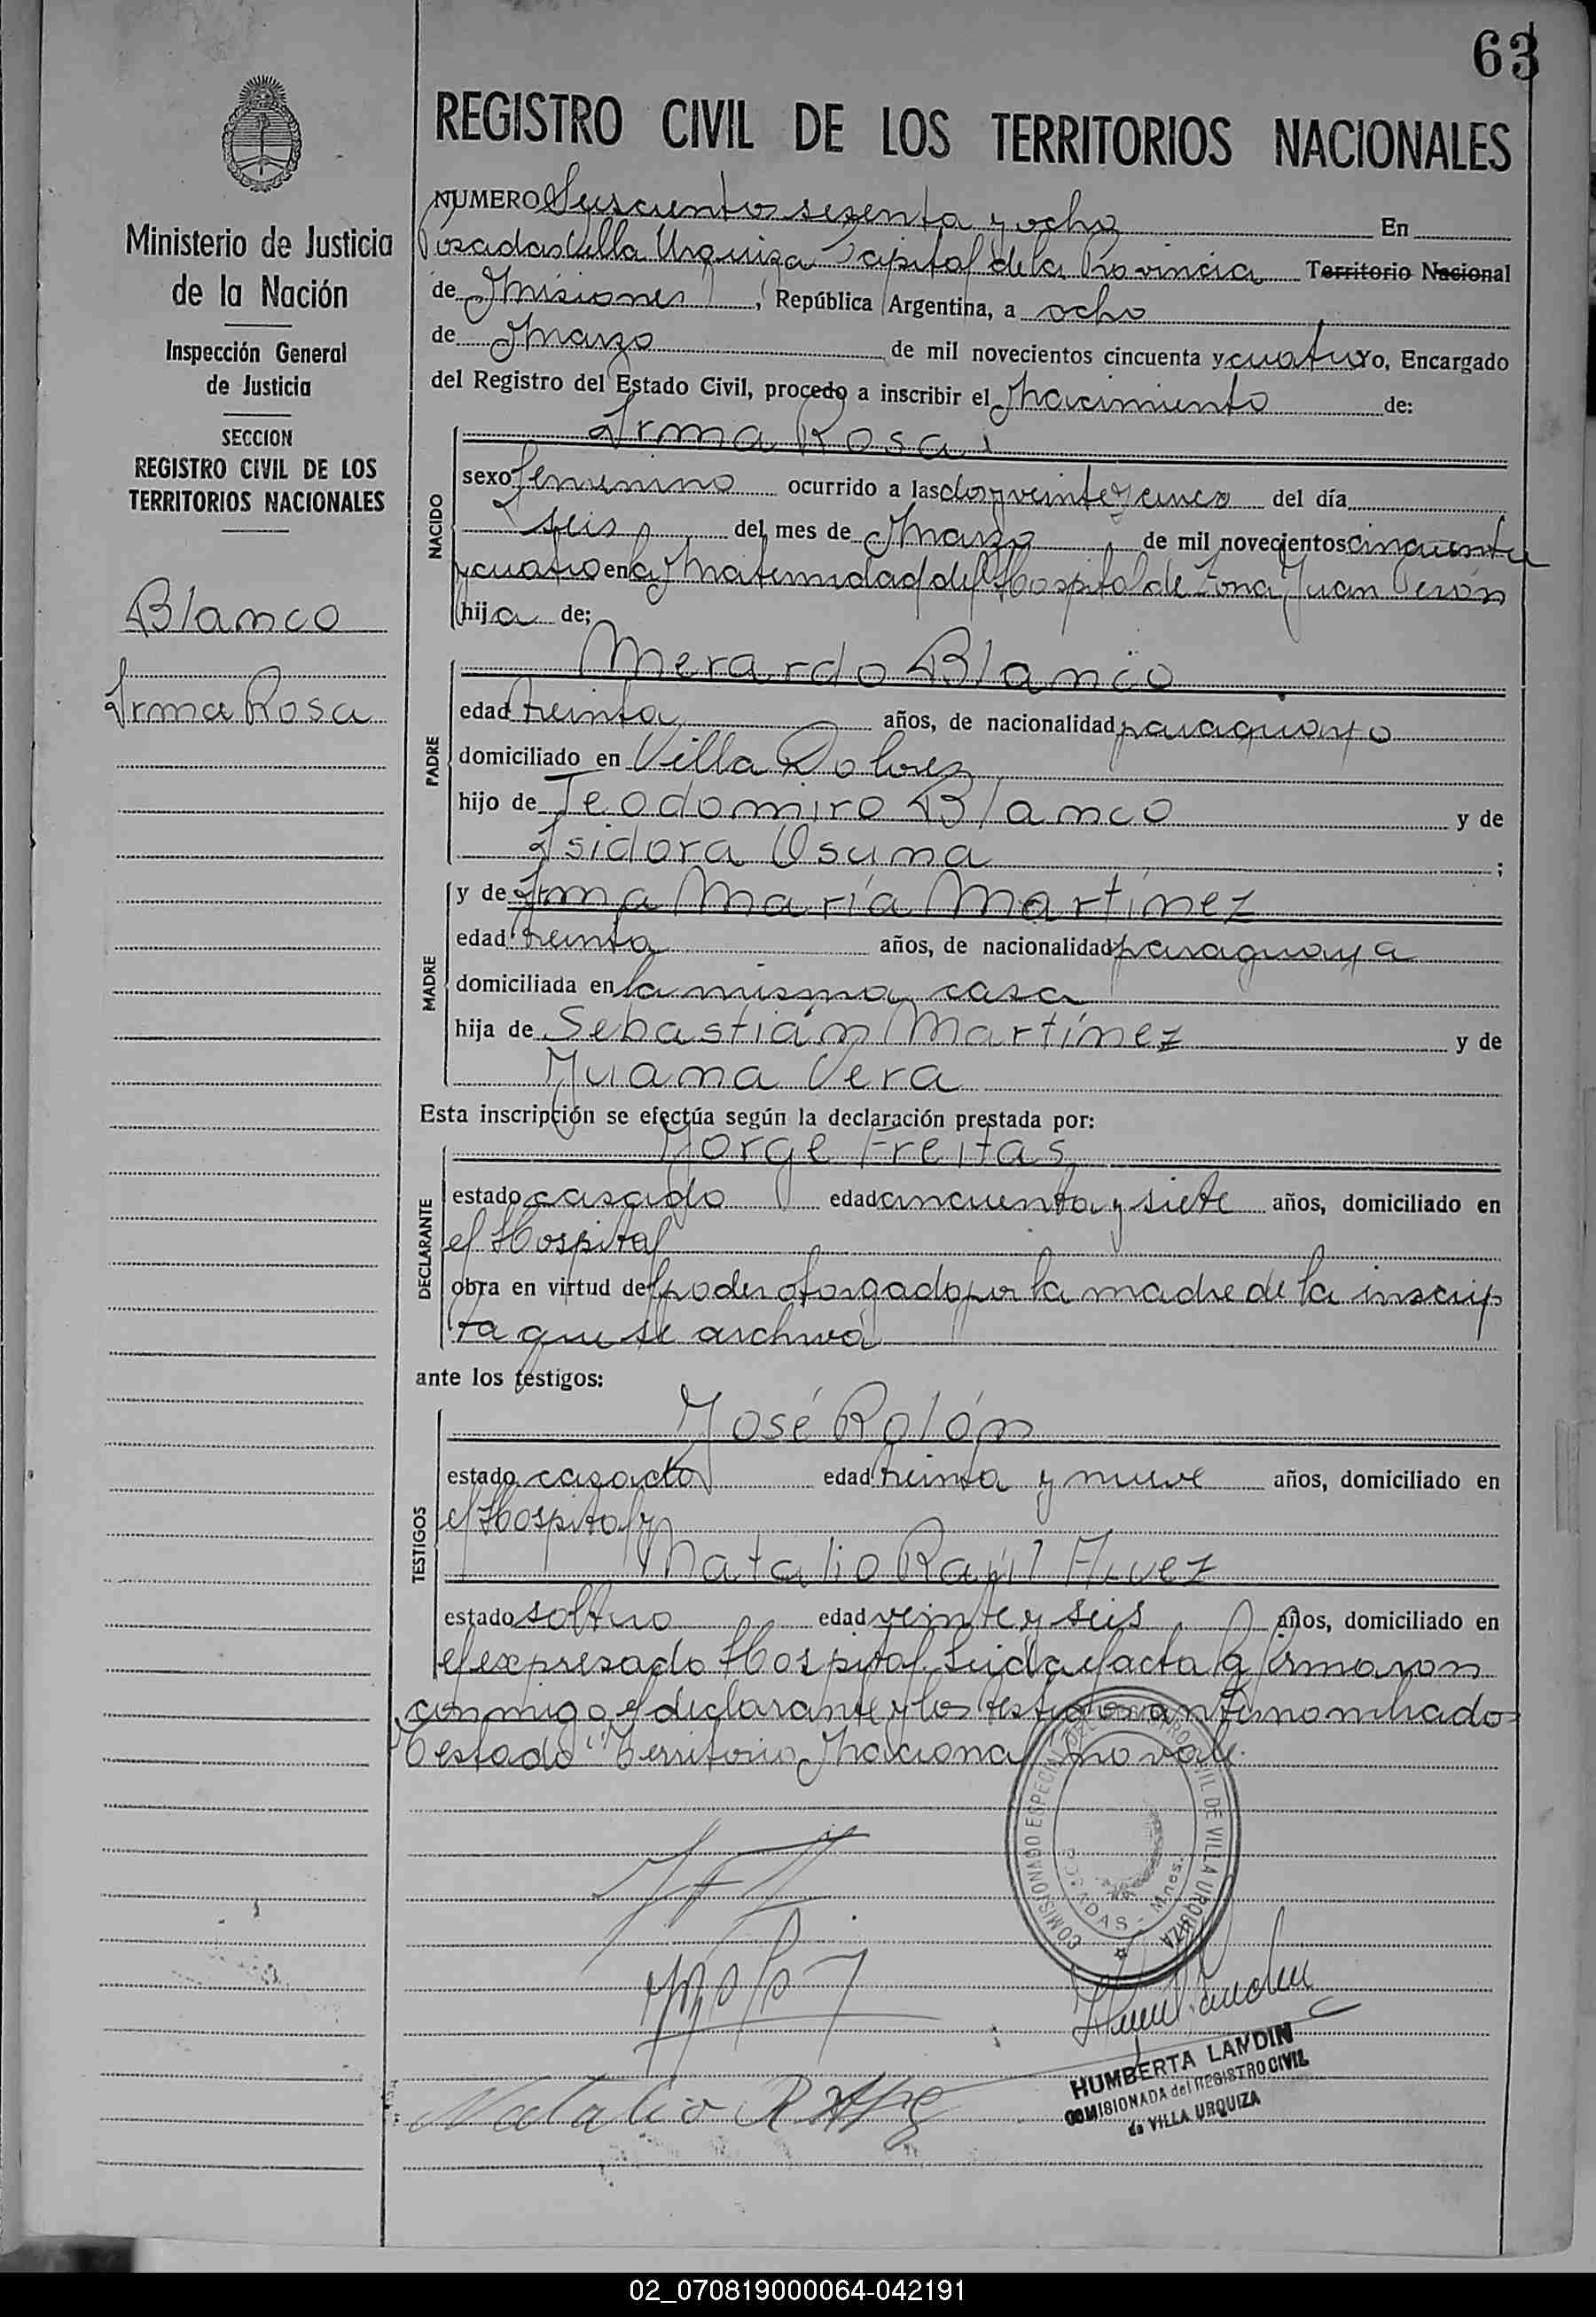 63
REGISTRO CIVIL DE LOS TERRITORIOS NACIONALES
Ministerio de Justicia
de la Nación
Inspección General
de Justicia
SECCION
REGISTRO CIVIL DE LOS
TERRITORIOS NACIONALES
Blanco
Irma Rosa
NUMERO Seiscientos sesenta y ocho En
Posadas Villa Urquiza Capital de la Provincia Territorio Nacional
de Misiones, República Argentina, a ocho
de Marzo de mil novecientos cincuenta y cuatro Yo, Encargado
del Registro del Estado Civil, procedo a inscribir el Nacimiento de:
NACIDO
Irma Rosa
sexo femenino ocurrido a las dos y veinte y cinco del día
seis del mes de Marzo de mil novecientos cincuenta
y cuatro en la Maternidad del Hospital de Zona Juan Perón
hija de;
PADRE
Merardo Blanco
edad treinta años, de nacionalidad paraguayo
domiciliado en Villa Dolores
hijo de Teodomiro Blanco y de
Isidora Osuna ;
MADRE
y de Irma María Martínez
edad treinta años, de nacionalidad paraguaya
domiciliada en la misma casa
hija de Sebastián Martínez y de
Juana Vera
Esta inscripción se efectúa según la declaración prestada por:
DECLARANTE
Jorge Freitas
estado casado edad cincuenta y siete años, domiciliado en
el Hospital
obra en virtud del poder otorgado por la madre de la inscrip
ta que se archiva
ante los testigos:
TESTIGOS
José Rolón
estado casado edad treinta y nueve años, domiciliado en
el Hospital y
Natalio Raúl
estado soltero edad veinte y seis años, domiciliado en
el expresado Hospital Leída el acta la firmaron
conmigo el declarante y los testigos antes nombrados
Testado "Territorio Nacional" no vale.
COMISIONADO ESPECIAL DEL REGISTRO CIVIL DE VILLA URQUIZA
POSADAS - Mnes.
Natalio R
HUMBERTA LANDIN
COMISIONADA del REGISTRO CIVIL
de VILLA URQUIZA
02_070819000064-042191